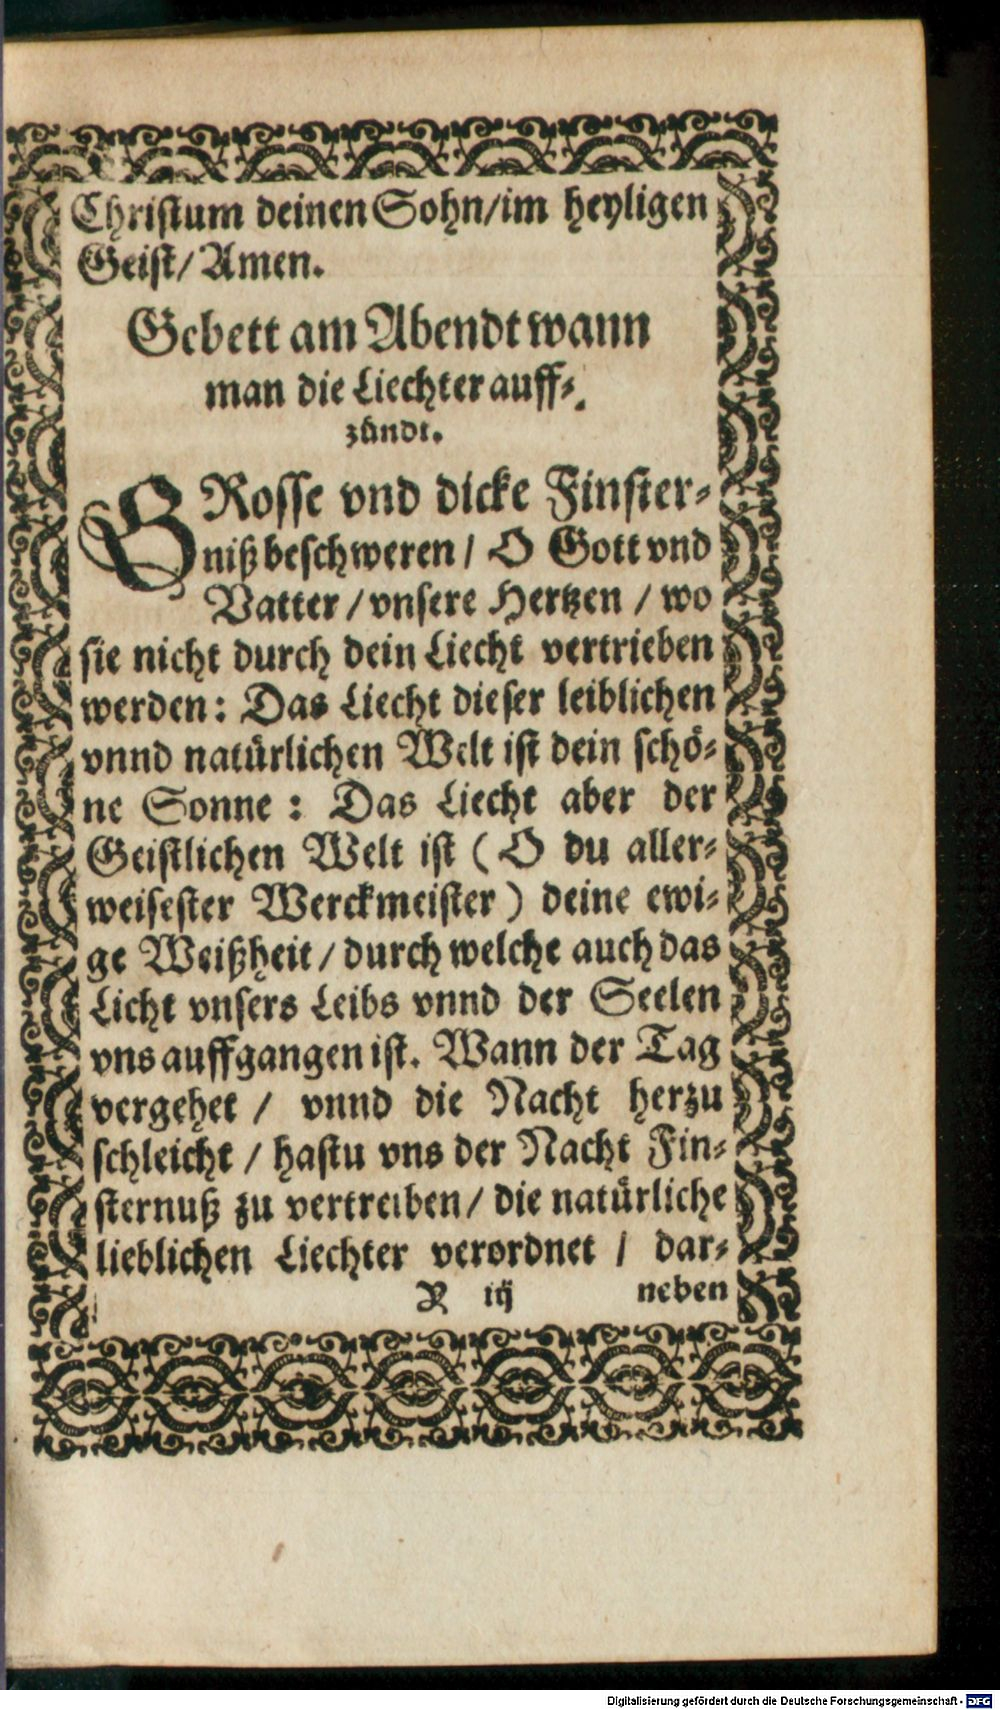 Christum deinen Sohn/im heyligen
Geist/ Amen.
Gebett am Abendt wann
man die Liechter auff⸗
zündt.
GRosse vnd dicke Finster⸗
niß beschweren / O Gott vnd
Vatter / vnsere Hertzen / wo
sie nicht durch dein Liecht vertrieben
werden: Das Liecht dieser leiblichen
vnnd natürlichen Welt ist dein schö⸗
ne Sonne : Das Liecht aber der
Geistlichen Welt ist ( O du aller⸗
weisester Werckmeister ) deine ewi⸗
ge Weißheit / durch welche auch das
Licht vnsers Leibs vnnd der Seelen
vns auffgangen ist. Wann der Tag
vergehet / vnnd die Nacht herzu
schleicht / hastu vns der Nacht Fin⸗
sternuß zu vertreiben/ die natürliche
lieblichen Liechter verordnet / dar⸗
R iij neben
Digitalisierung gefördert durch die Deutsche Forschungsgemeinschaft - DFG